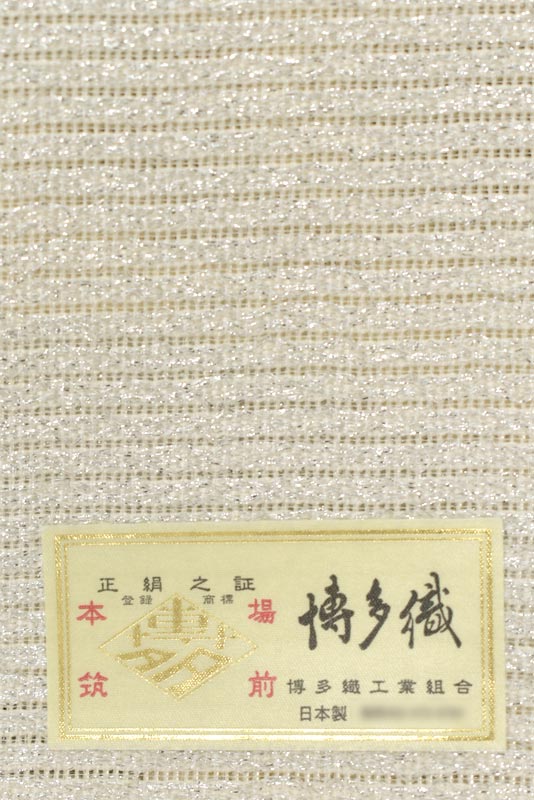 正絹之証
登録 商標
本場
筑前
博多
博多織
博多織工業組合
日本製